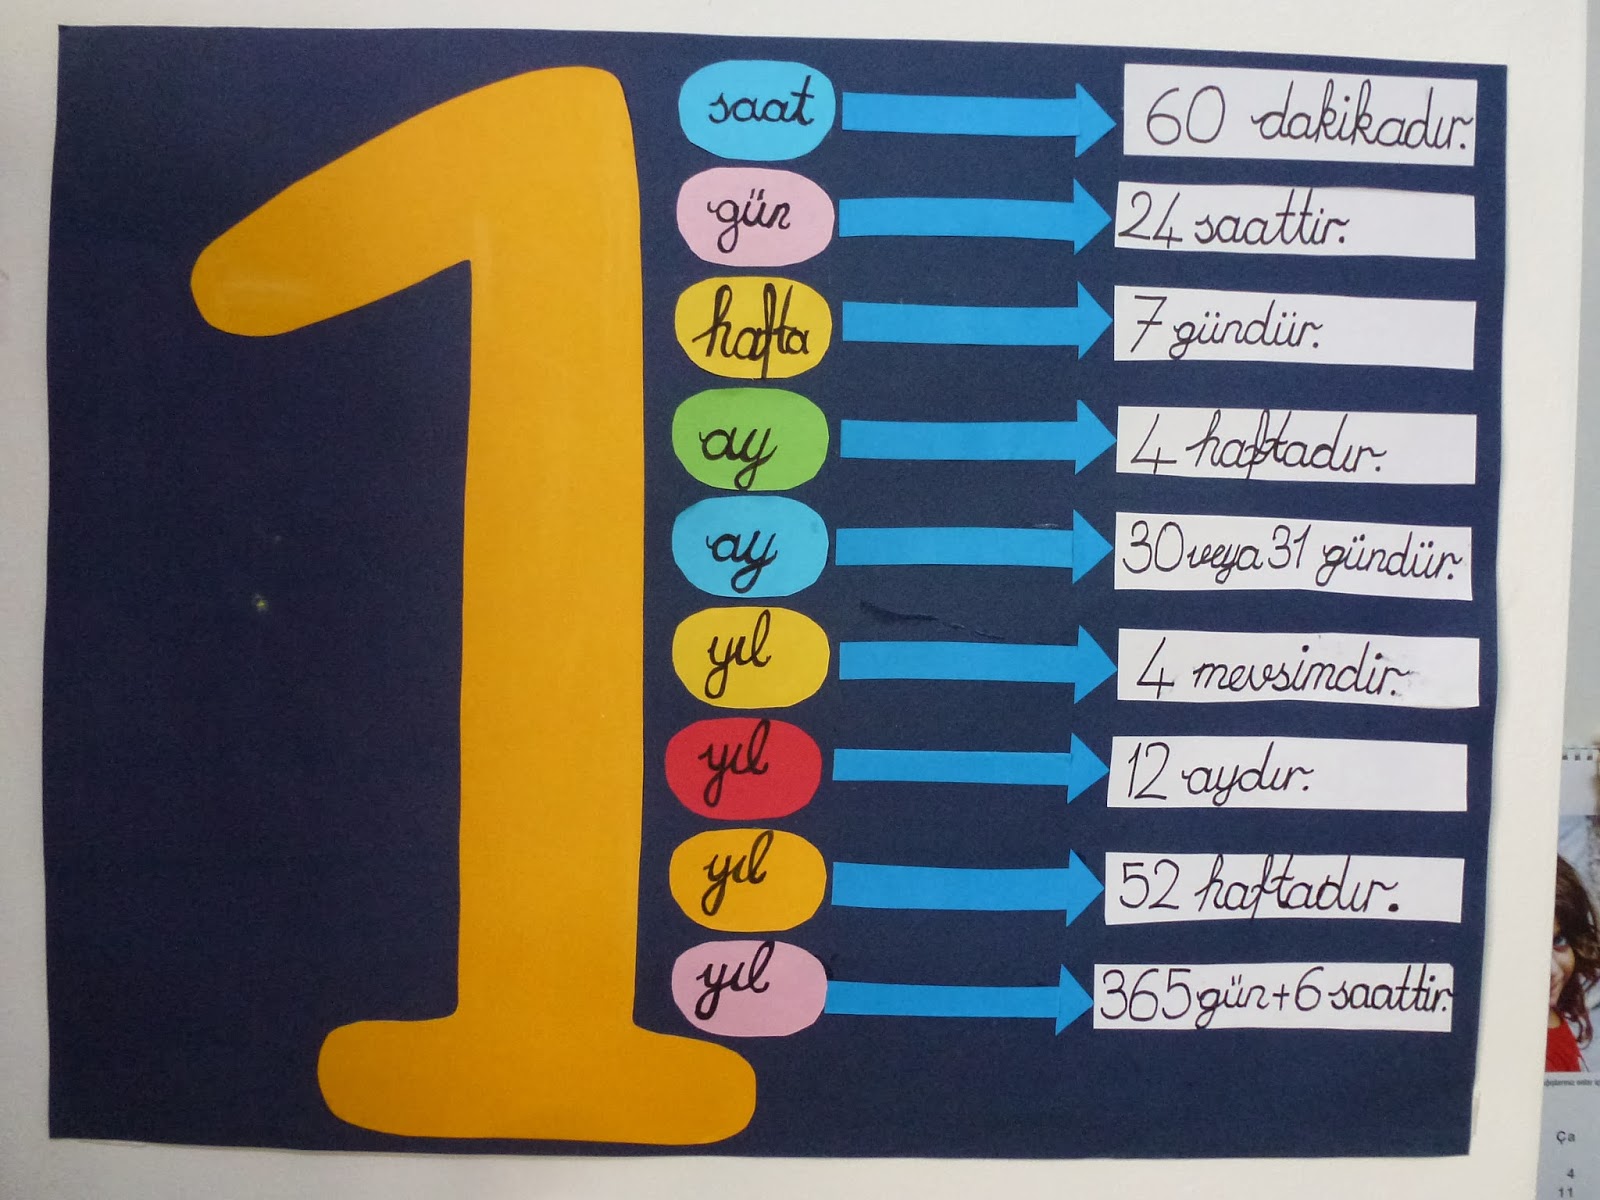 1
saat 60 dakikadır.
gün 24 saattir.
hafta 7 gündür.
ay 4 haftadır.
ay 30 veya 31 gündür.
yıl 4 mevsimdir.
yıl 12 aydır.
yıl 52 haftadır.
yıl 365 gün+6 saattir.
Ça
4
11